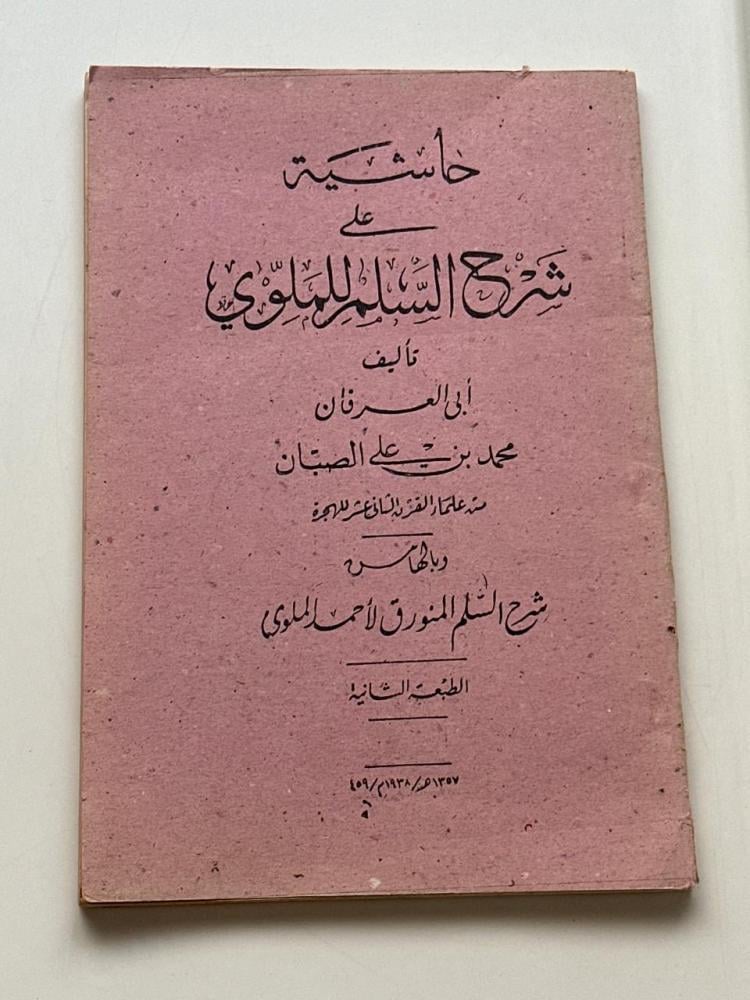 حاشية
على
شرح السلم للملوي
تأليف
أبى العرفان
محمد بن على الصبان
من علماء القرن الثانى عشر للهجرة
وبالهامش
شرح السلم المنورق لأحمد الملوى
الطبعة الثانية
١٣٥٧هـ/١٩٣٨م/٤٥٩